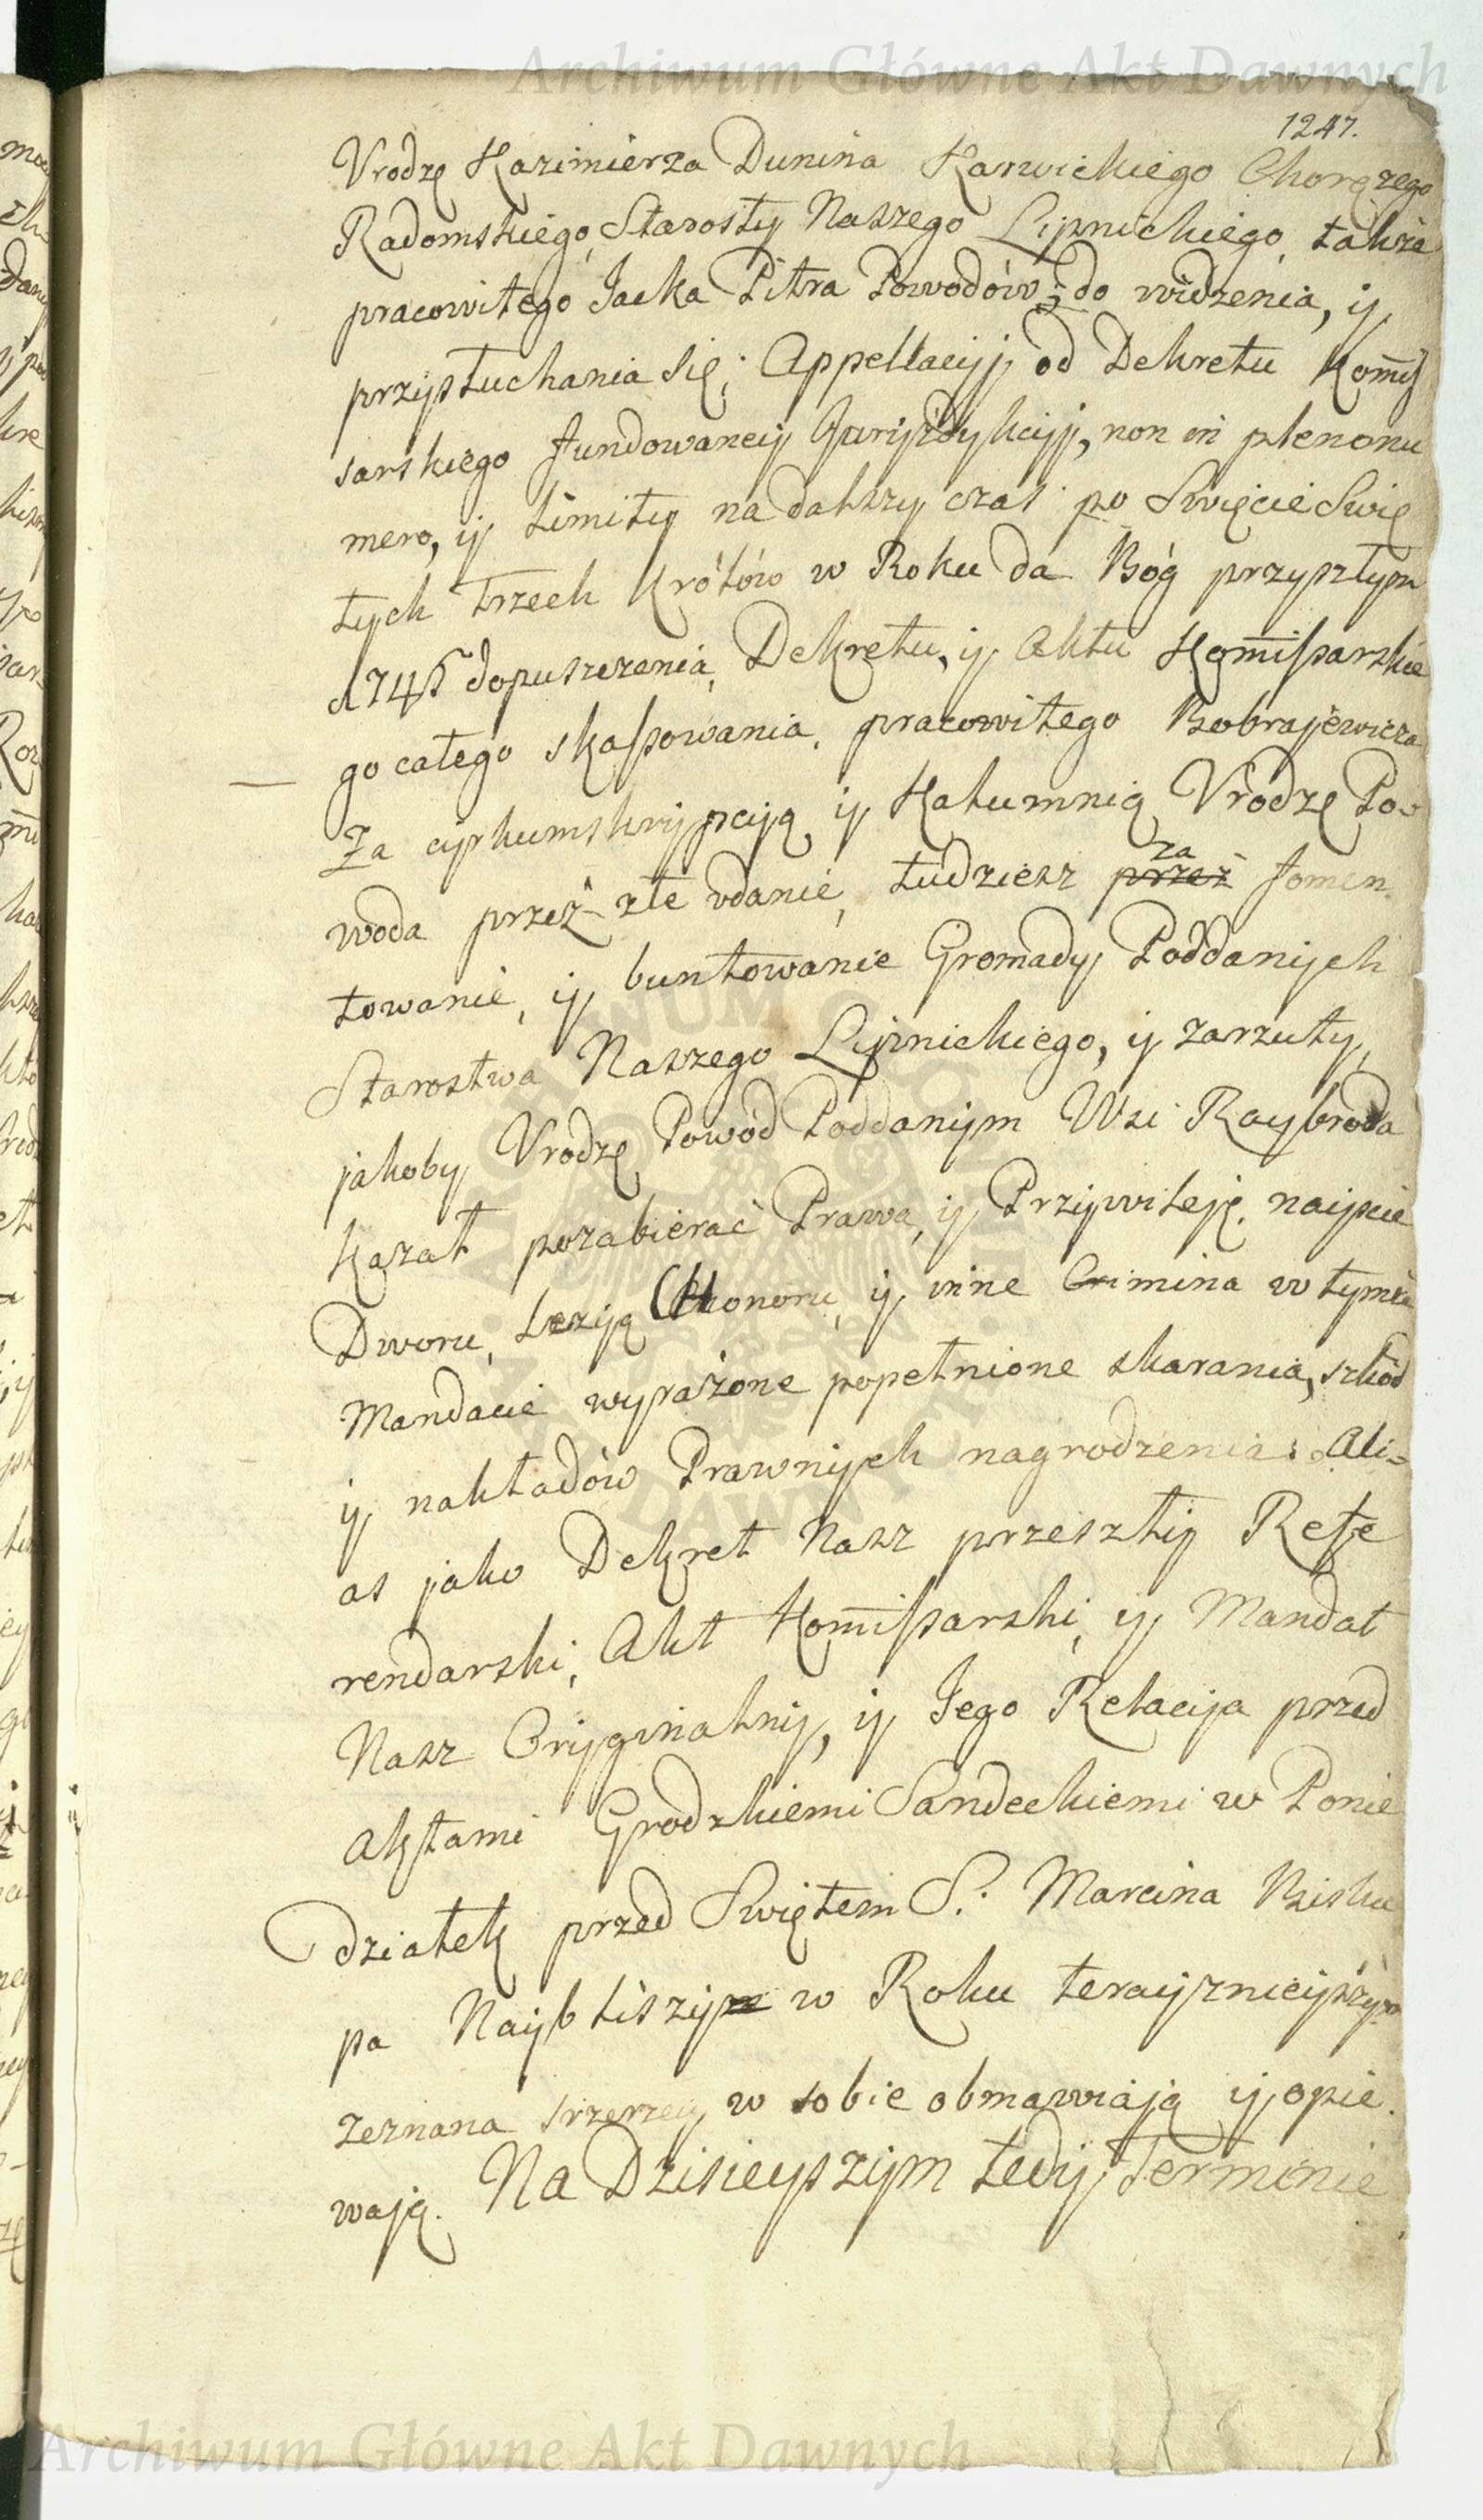 Archiwum Główne Akt Dawnych
1247.
Vrodzę Kazimierza Dunina Karwickiego Chorązego
Radomskiego, Starosty Naszego Lipnickiego, także
pracowitego Jacka Pitra Powodów; do widzenia, y
przysłuchania się; Appellacyj od Dekretu Kom̄i
sarskiego fundowaney Juryzdykcyj, non in plenonu
mero, y limity na dalszy czas po Swięcie Swię
tych Trzech Królów w Roku da Bóg przyszłym
1745 dopuszczenia, Dekretu, y Aktu Kom̄issarskie
go całego skassowania, pracowitego Bobrajewicza
Za cyrkumskrypcyą y Kalumnią Vrodzę Po-
woda przez złe vdanie, tudziesz przez za fomen
towanie, y buntowanie Gromady Poddanych
Starostwa Naszego Lipnickiego, y zarzuty,
jakoby Vrodzę Powód Poddanym Wsi Raybroda
kazał pozabierać Prawa, y Przywileje, najscie
Dworu, Lezyą Honoru, y inne Crimina w tymże
Mandacie wyrażone popełnione skarania, szkód
y nakładów Prawnych nagrodzenia: Ali-
as jako Dekret Nasz przeszły Refe
rendarski, Akt Kom̄issarski, y Mandat
Nasz Oryginalny, y Jego Relacya przed
Aktami Grodzkiemi Sandeckiemi w Ponie
działek przed Swiętem S. Marcina Bisku
pa Nayblisszym w Roku teraysznieyszym
zeznana szerzey w sobie obmawiają y opie
wają. Na Dzisieyszym tedy Terminie
Archiwum Główne Akt Dawnych